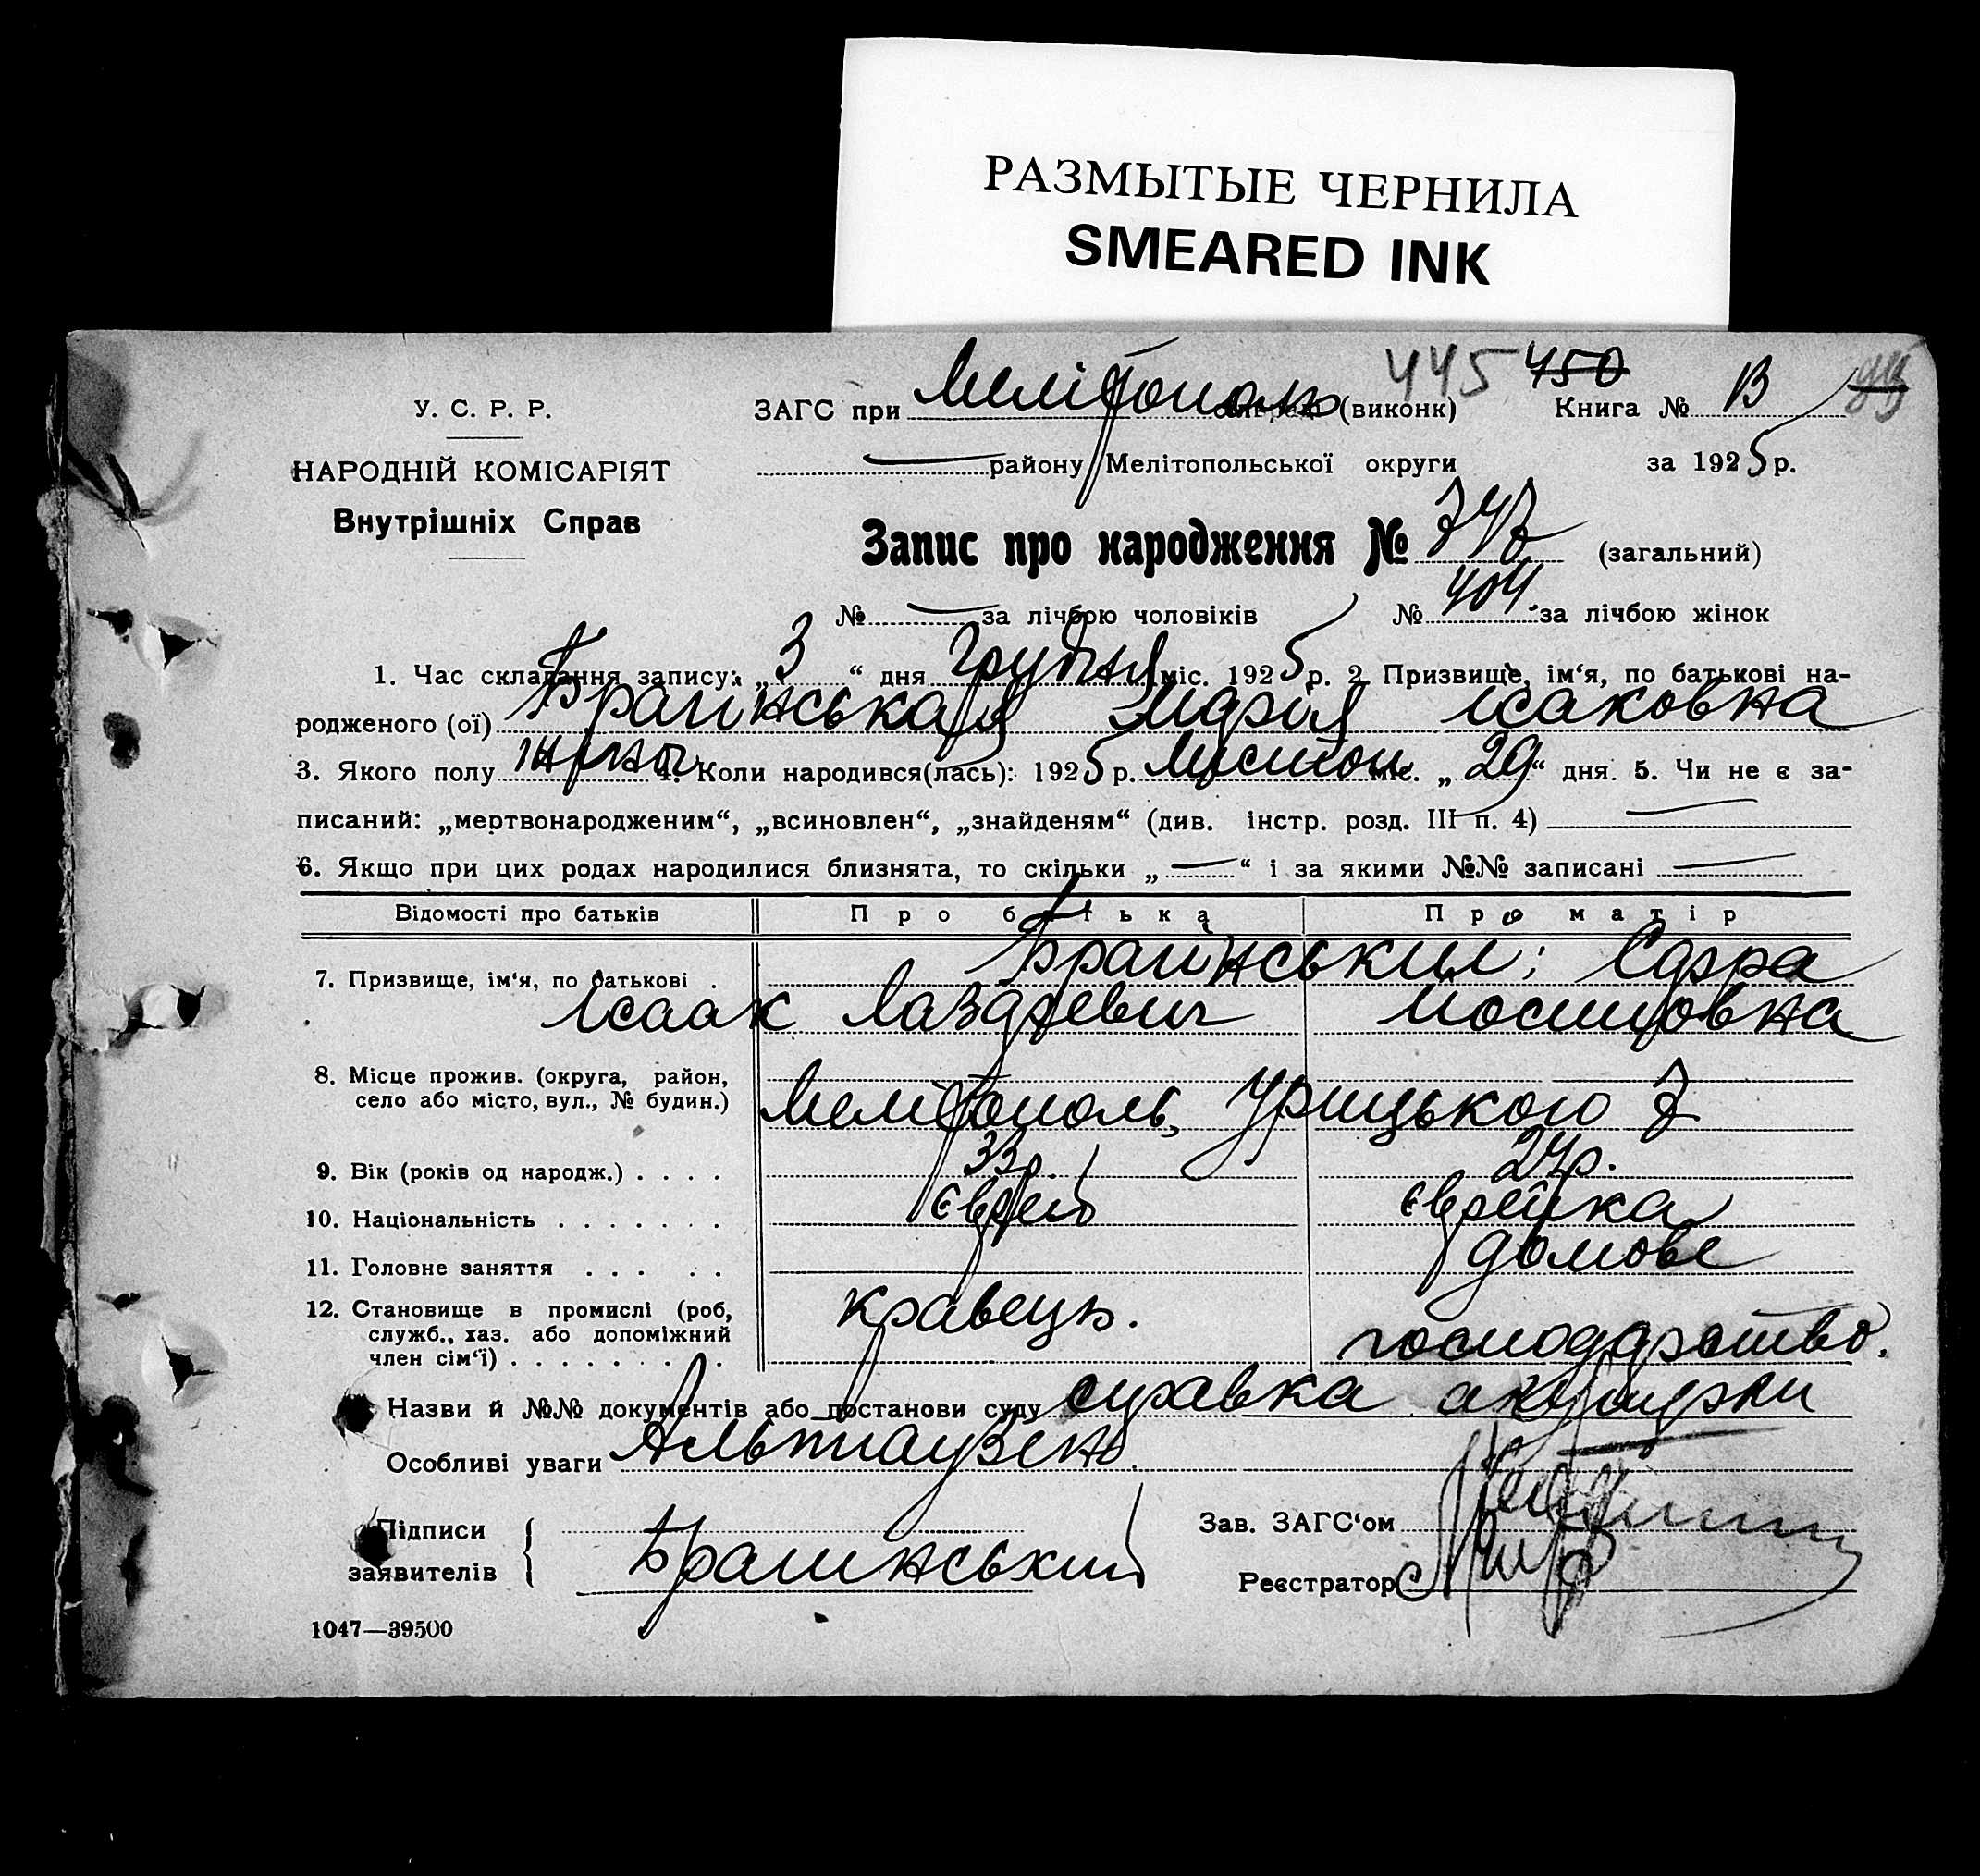 РАЗМЫТЫЕ ЧЕРНИЛА
SMEARED INK
У. С. Р. Р.
НАРОДНІЙ КОМІСАРІЯТ
Внутрішніх Справ
445 450
ЗАГС при Мелітополь (виконк) Книга № В
— району Мелітопольської округи за 1925 р.
Запис про народження № 747 (загальний)
№ — за лічбою чоловіків № 404 за лічбою жінок
1. Час складання запису: „3“ дня Грудня міс. 1925 р. 2. Призвище, ім‘я, по батькові на-
родженого (ої) Брагинська Марія Ісаковна
3. Якого полу жіно 4. Коли народився(лась): 1925 р. Листоп міс. „29“ дня. 5. Чи не є за-
писаний: „мертвонародженим“, „всиновлен“, „знайденям“ (див. інстр. розд. III п. 4) —
6. Якщо при цих родах народилися близнята, то скільки „—“ і за якими №№ записані —
Відомості про батьків Про батька Про матір
7. Призвище, ім‘я, по батькові . Брагинський; Сарра
Ісаак Лазаревич Иосиповна
8. Місце прожив. (округа, район,
село або місто, вул., № будин.) Мелітополь, Урицького 7
9. Вік (років од народж.) . . . . 33р. 24р.
10. Національність . . . . . . . Єврей Єврейка
11. Головне заняття . . . . . домове
12. Становище в промислі (роб,
служб., хаз. або допоміжний
член сім‘ї) . . . . . . . . . кравець. господарство.
Назви й №№ документів або постанови суду справка акушерки
Особливі уваги Альтгаузен.
Підписи
заявителів Брагинський
Зав. ЗАГС‘ом
Реєстратор
1047—39500